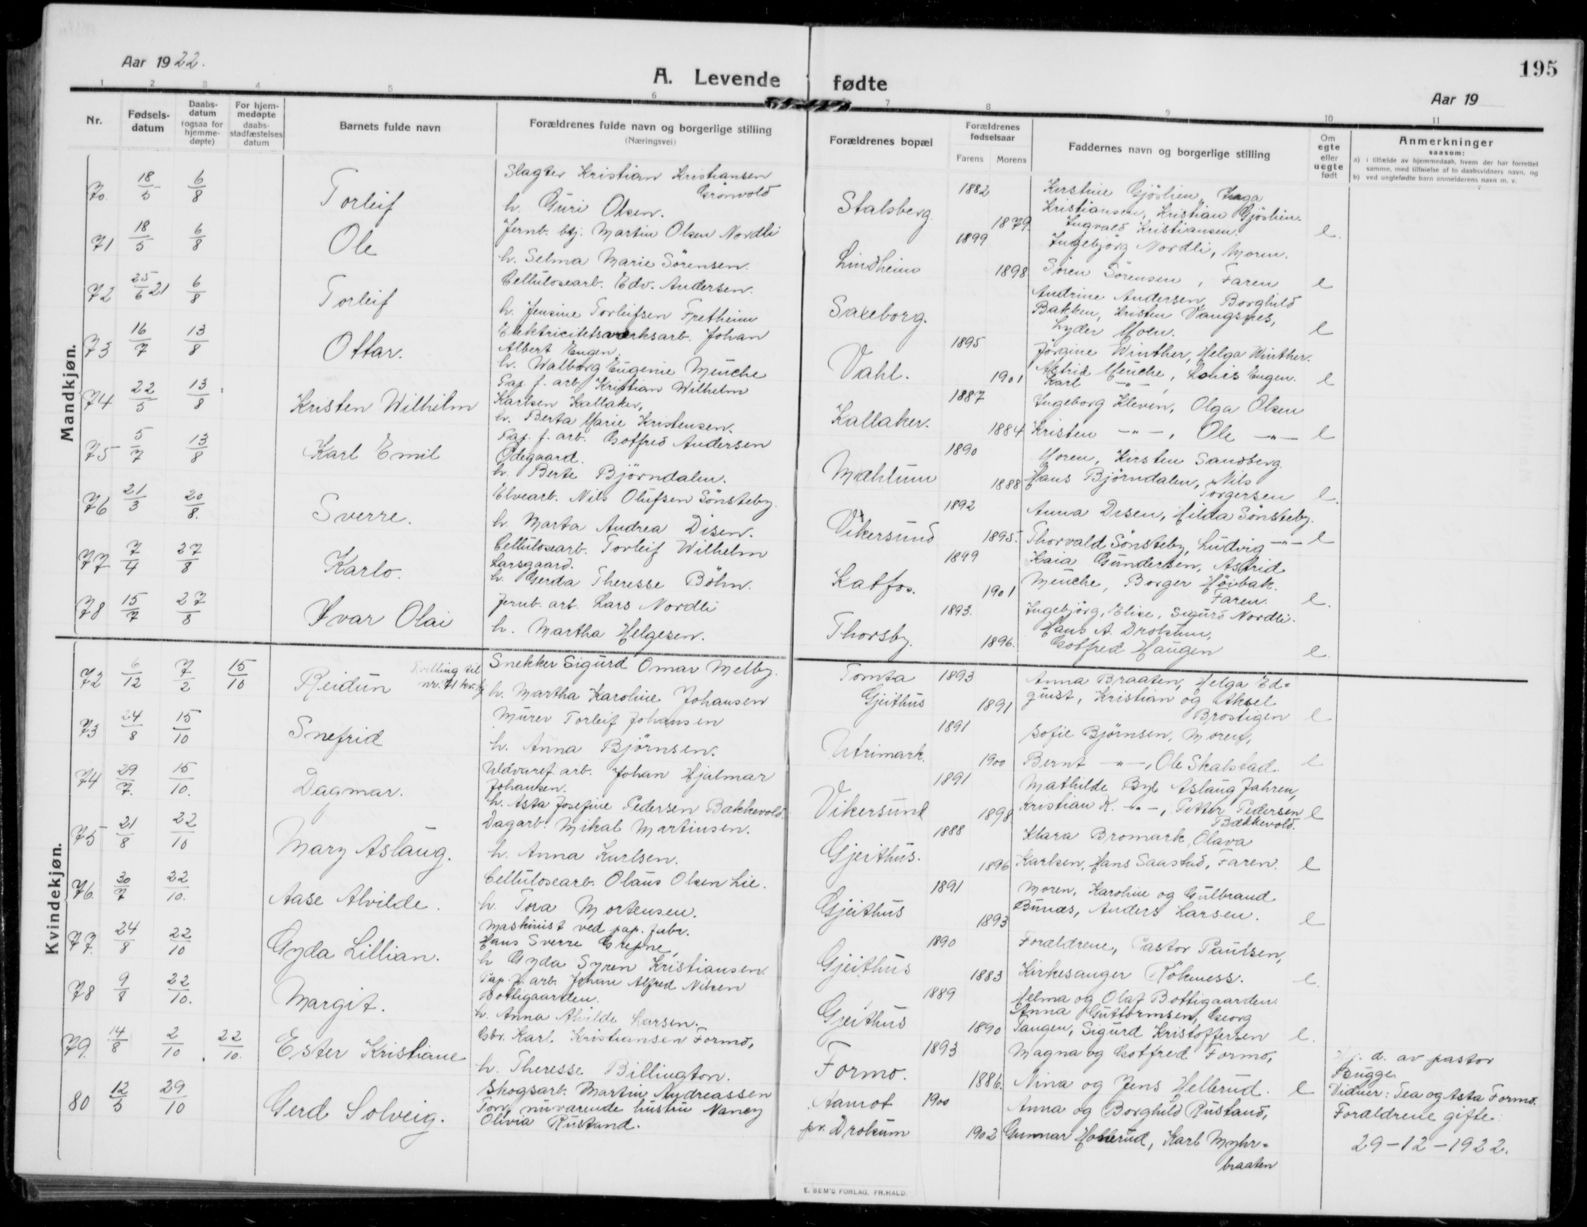 Aar 1922.
A. Levende fødte
195
Aar 19
1 2 3 4 5 6 7 8 9 10 11
Nr.
Fødsels-
datum
Daabs-
datum
(ogsaa for
hjemme-
døpte)
For hjem-
medøpte
daabs-
stadfæstelses
datum
Barnets fulde navn
Forældrenes fulde navn og borgerlige stilling
(Næringsvei)
Forældrenes bopæl
Forældrenes
fødselsaar
Farens Morens
Faddernes navn og borgerlige stilling
Om
egte
eller
uegte
født
Anmerkninger
saasom:
a) i tilfælde av hjemmedaab, hvem der har forrettet
samme, med tilføelse af to daabsvidners navn, og
b) ved uegtefødte barn anmelderens navn m. v.
Mandkjøn.
70. 18/5 6/8 Torleif
Slagter Kristian Kristiansen
Grønvold
h. Guri Olsen.
Stalsberg. 1882 1879.
Kirstine Gjøslien, Inga
Kristiansen, Kristian Gjøslien
Ingvald Kristiansen. e.
71 18/5 6/8 Ole
Jernb. btj. Martin Olsen Nordli
h. Selma Marie Sørensen.
Lindheim 1899 1898
Ingebjørg Nordli, Moren.
Søren Sørensen, Faren e
72 25/6 21 6/8 Torleif
Cellulosearb. Edv. Andersen.
h. Jensine Torleifsen Fretheim
Saxeborg.
Andrine Andersen, Borghild
Bakken, Kristen Vangsnes,
Lyder Moen. e
73 16/7 13/8 Ottar.
Elektricitetsverksarb. Johan
Albert Eugen.
h. Walborg Eugenie Meuche
Vahl. 1895 1901
Jørgine Winther, Helga Winther.
Astrid Meuche, Louis Eugen. e
Karl -"-
74 22/5 13/8 Kristen Wilhilm
Pap. f. arb. Kristian Wilhelm
Karlsen Kallaker,
h. Berta Marie Kristensen.
Kallaker. 1887 1884
Ingeborg Kleven, Olga Olsen
Kristen -"-, Ole -"- e
75 5/7 13/8 Karl Emil
Pap. f. arb. Gotfred Andersen
Ødegaard.
h. Berte Bjørndalen.
Mæhlum 1890 1888
Moren, Kirsten Sandberg.
Hans Bjørndalen, Nils
Torgersen e.
76 21/3 20/8. Sverre.
Elvearb. Nils Olufsen Sønsteby.
h. Marta Andrea Disen.
Vikersund 1892 1895.
Anna Disen, Hilda Sønsteby.
Thorvald Sønsteby, Ludvig -"- e
77 7/4 27/8 Karlo.
Cellulosearb. Torleif Wilhelm
Larsgaard.
h. Gerda Theresse Bøhn.
Katfos. 1899 1901
Kaia Gundersen, Astrid
Meuche, Borger Høibak.
Faren. e.
78 15/7 27/8 Ivar Olai
Jernb. arb. Lars Nordli
h. Martha Helgesen.
Thorsby. 1893. 1896.
Ingebjørg, Elise, Sigurd Nordli.
Hans A. Drolsum,
Gotfred Haugen e
Kvindekjøn.
72 6/12 7/2 15/10 Reidun Tvilling til
nr. 71
Snekker Sigurd Omar Melby.
h. Martha Karoline Johansen
Tomta
Gjeithus 1893 1891
Anna Braaten, Helga Ed-
quist, Kristian og Aksel
Brostigen e
73 24/8 15/10 Snefrid
Murer Torleif Johansen
h. Anna Bjørnsen.
Utrimark. 1891 1900
Sofie Bjørnsen, Moren,
Bernt -"-, Ole Skalstad. e
74 29/7. 15/10. Dagmar.
Uldvaref. arb. Johan Hjalmar
Johansen.
h. Asta Josefine Pedersen Bækkevold.
Vikersund 1891 1898
Mathilde By Aslaug Jahren,
Kristian K. -"-, Petter Pedersen e
Bækkevold.
75 21/8 22/10 Mary Aslaug.
Dagarb. Mikal Martinsen.
h. Anna Karlsen.
Gjeithus. 1888 1896
Klara Bromark, Olava
Karlsen, Hans Saastad, Faren. e
76. 30/7 22/10. Aase Alvilde.
Cellulosearb. Olaus Olsen Lie.
h. Tora Mortensen.
Gjeithus 1891 1893
Moren, Karoline og Gulbrand
Bunæs, Anders Larsen. e
77. 24/8 22/10 Gyda Lillian.
Maskinist ved pap. fabr.
Hans Sverre Grepne,
h Gyda Syren Kristiansen
Gjeithus 1890 1883
Forældrene, Pastor Paulsen,
Kirkesanger Røkness. e.
78 9/8 22/10. Margit.
Pap. f. arb. Johan Alfred Nilsen
Bottigaarden.
h. Anna Alvilde Larsen.
Gjeithus 1889 1890
Helma og Olaf Bottigaarden
Anna Guttormsen, Georg
Tangen, Sigurd Kristoffersen e.
79. 14/8 2/10 22/10. Ester Kristiane
Gbr. Karl Kristiansen Formo,
h. Theresse Billington.
Formo. 1893 1886.
Magna og Gotfred Formo,
Nina og Jens Hellerud. e
j. d. av pastor
Bugge
Vidner: Tea og Asta Formo.
80 12/5 29/10 Gerd Solveig.
Skogsarb. Martin Andreassen
Torp, nuværende hustru Nancy
Olivia Rustand.
Aamot
pr. Drolsum 1900 1902
Anna og Borghild Rustand,
Gunnar Hollerud, Karl Myhr-
braaten
Forældrene gifte
29-12-1922.
E. SEM'S FORLAG, FR.HALD.